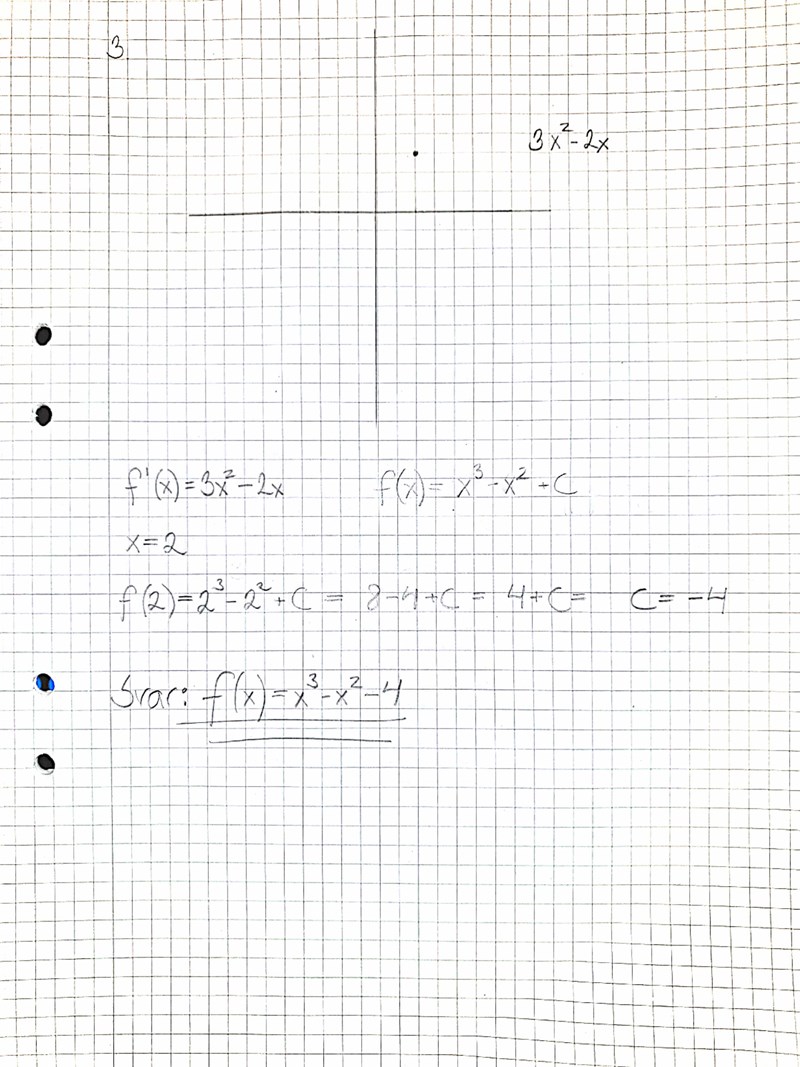 3.
3x² - 2x
f'(x) = 3x² - 2x f(x) = x³ - x² + C
x = 2
f(2) = 2³ - 2² + C = 8 - 4 + C = 4 + C = C = -4
Svar: f(x) = x³ - x² - 4